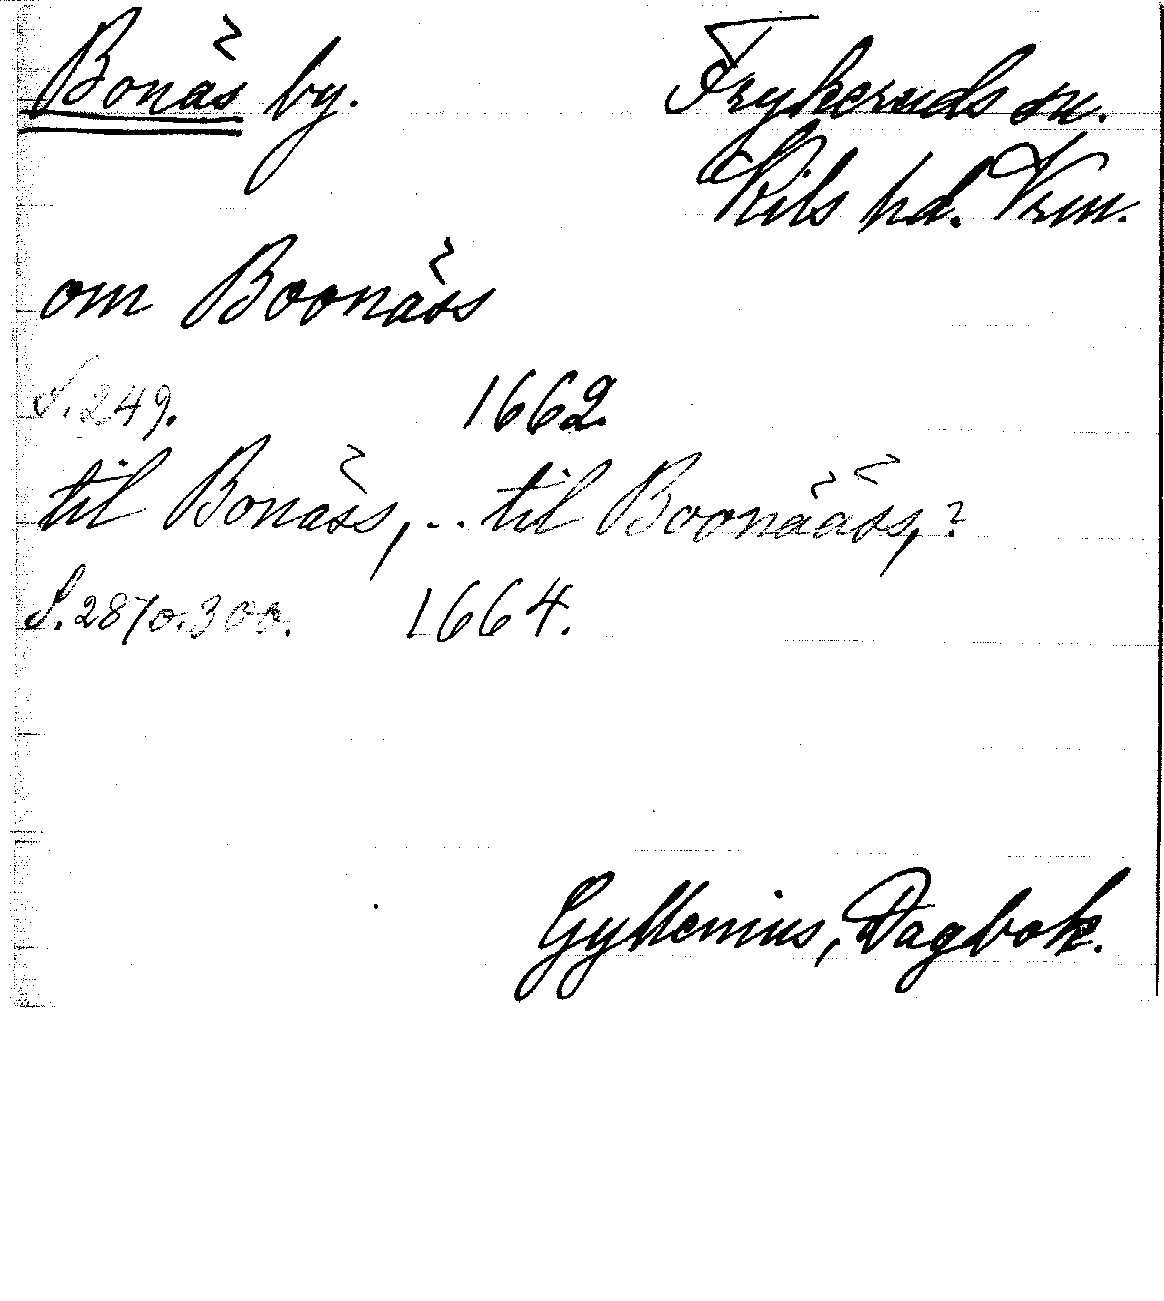 Bonäs by. Frykeruds sn.
Kils hd. Vrm.
om Boonäss
S. 249. 1662.
til Bonäss, .. til Boonääss, ?
S. 287 o. 300. 1664.
Gyllenius, Dagbok.